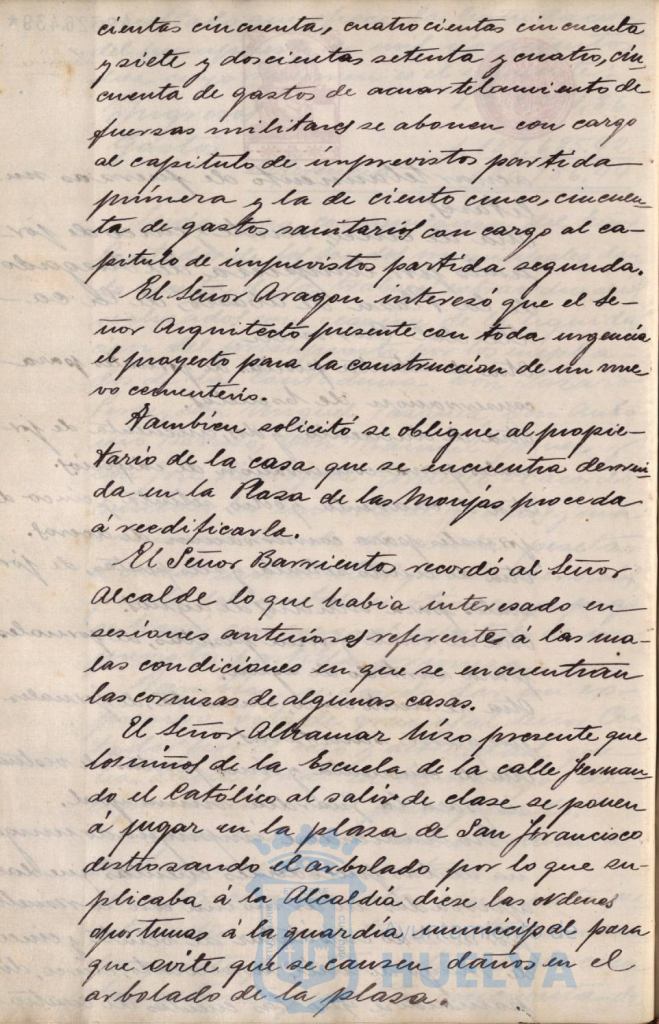 cientas cincuenta, cuatrocientas cincuenta
y siete y doscientas setenta y cuatro, cin-
cuenta de gastos de acuartelamiento de
fuerzas militares se abonen con cargo
al capitulo de imprevistos partida
primera y la de ciento cinco, cincuen-
ta de gastos sanitarios con cargo al ca-
pitulo de imprevistos partida segunda.
El Señor Aragon interesó que el Se-
ñor Arquitecto presente con toda urgencia
el proyecto para la construccion de un nue-
vo cementerio.
Tambien solicitó se obligue al propie-
tario de la casa que se encuentra derrui-
da en la Plaza de las Monjas proceda
á reedificarla.
El Señor Barrientos recordó al Señor
Alcalde lo que habia interesado en
sesiones anteriores referente á las ma-
las condiciones en que se encuentran
las cornizas de algunas casas.
El Señor Altramar hizo presente que
los niños de la Escuela de la calle Fernan-
do el Católico al salir de clase se ponen
á jugar en la plaza de San Francisco
destrozando el arbolado por lo que su-
plicaba á la Alcaldía diese las ordenes
oportunas á la guardia municipal para
que evite que se causen daños en el
arbolado de la plaza.
HUELVA